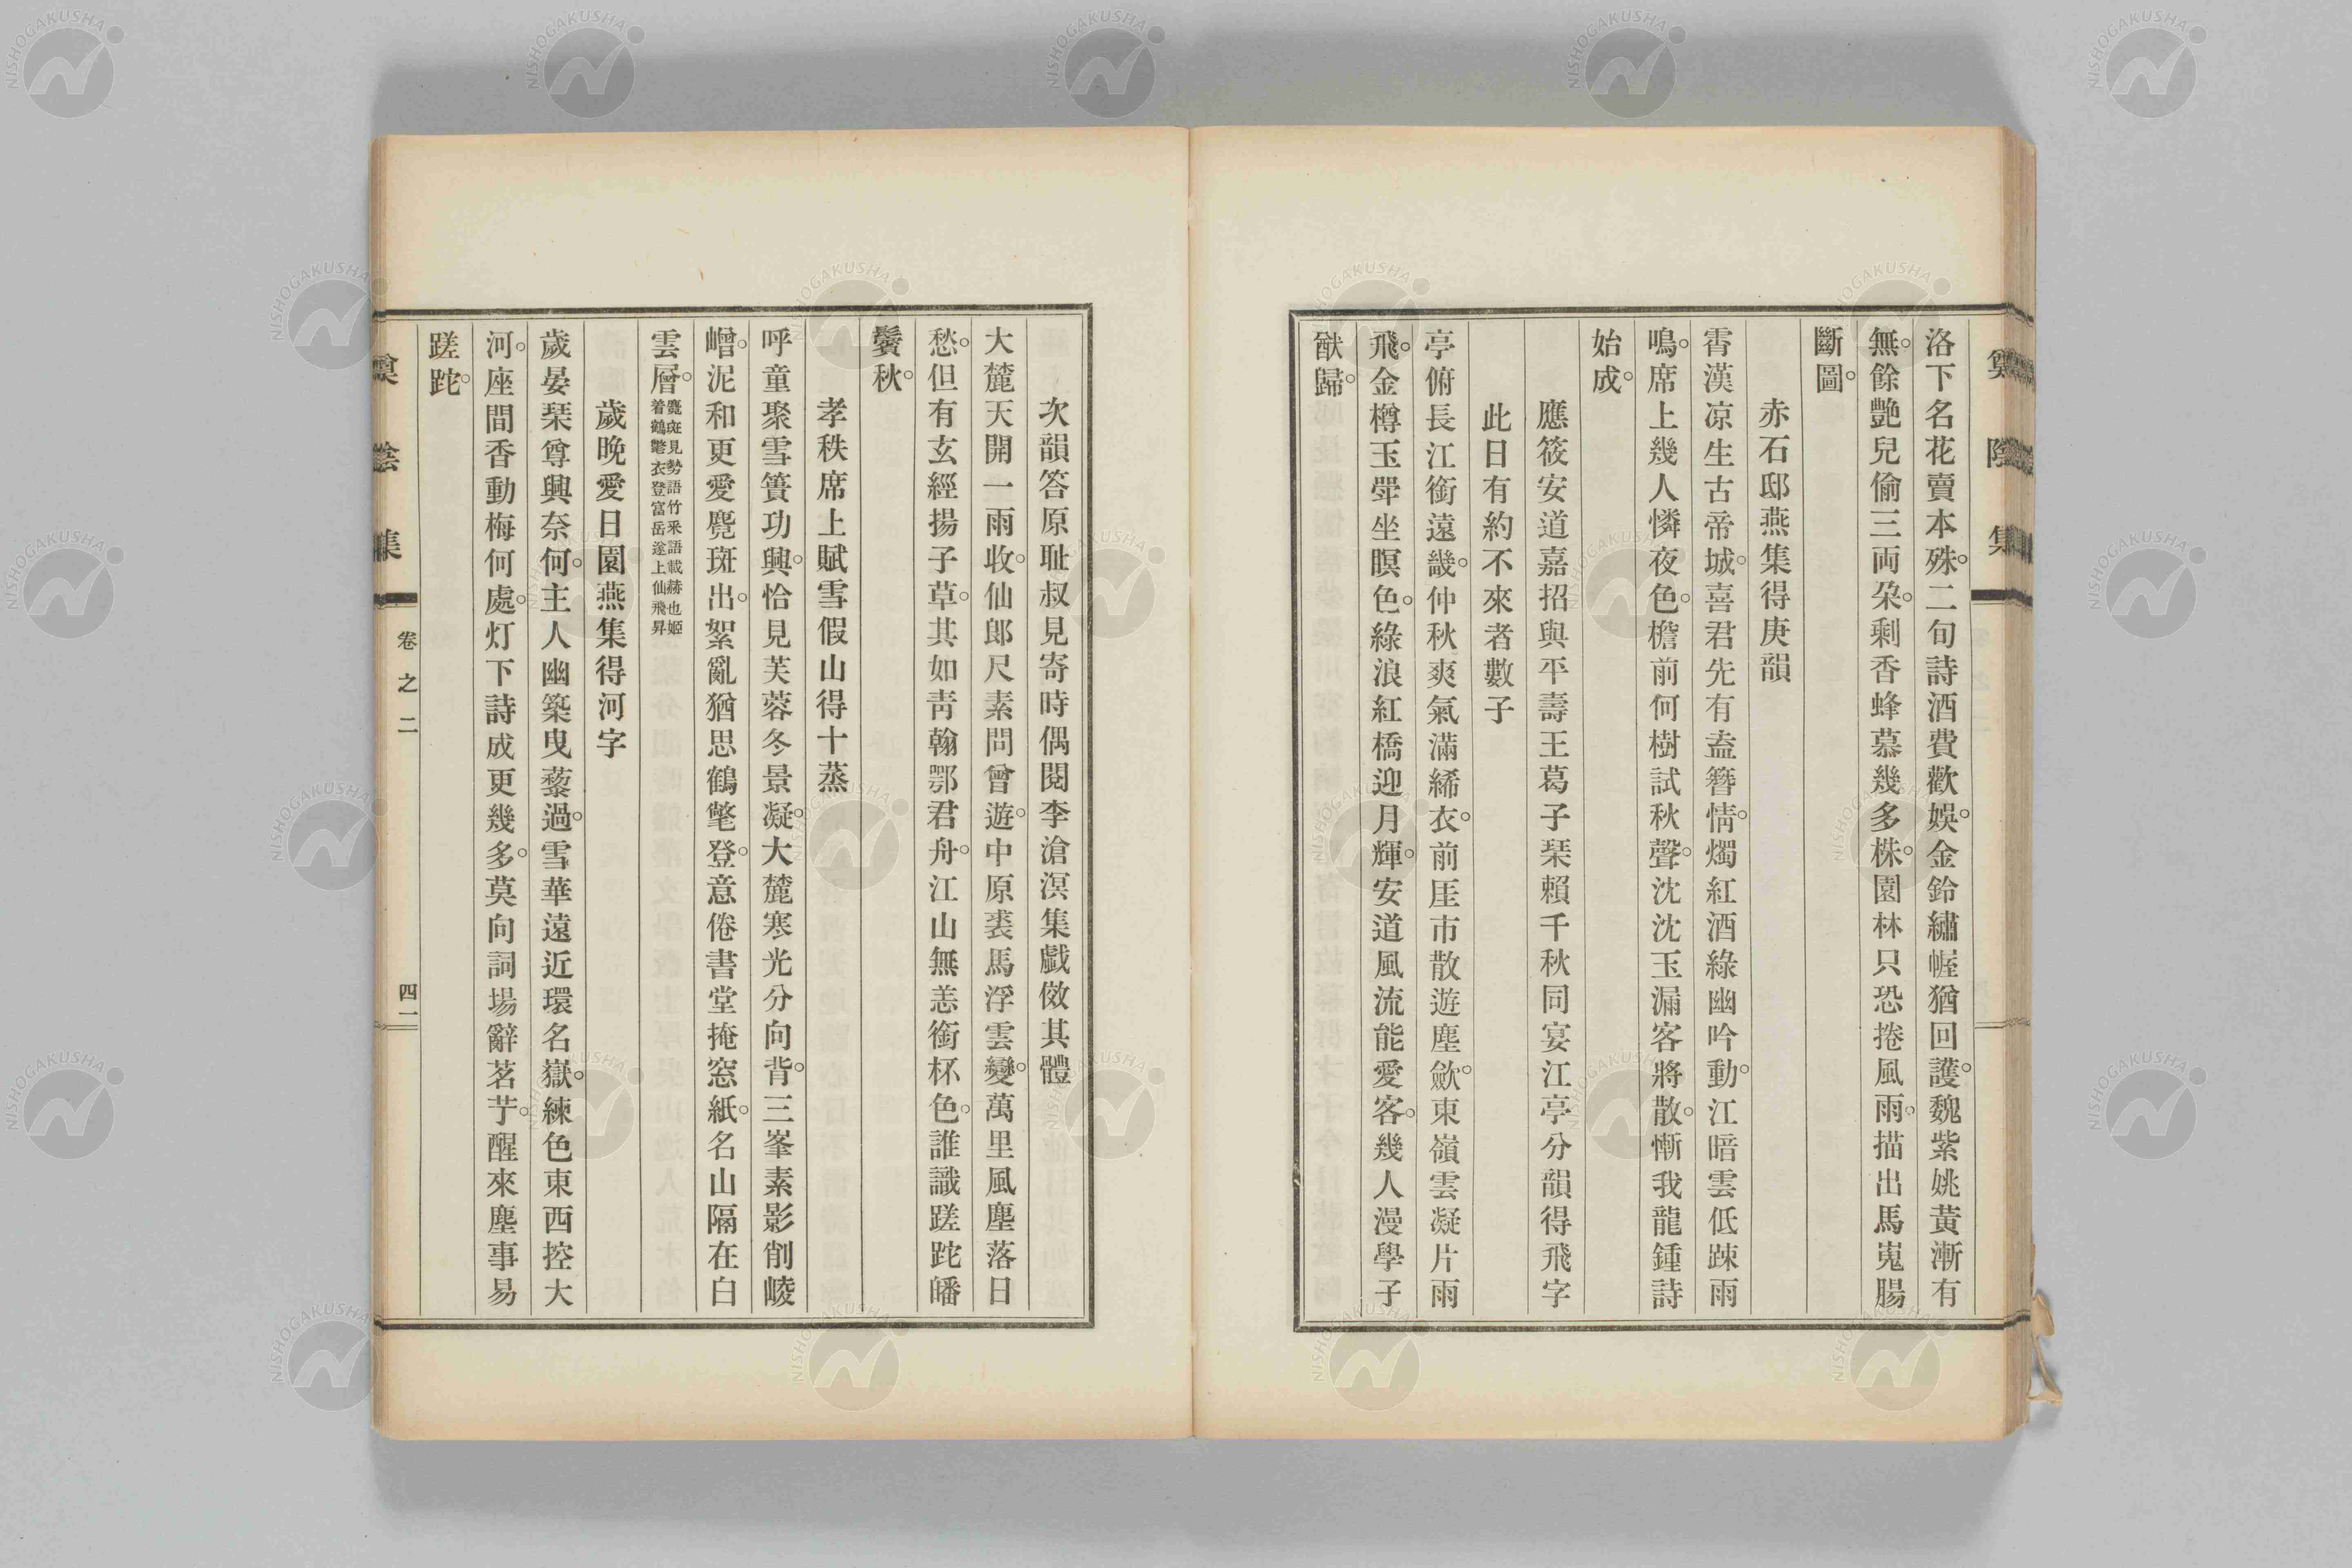 洛下名花賣本殊。二句詩酒費歡娯。金鈴繡幄猶回護。魏紫姚黃漸有
無。餘艷兒偷三両朶。剩香蜂慕幾多株。園林只恐捲風雨。描出馬嵬腸
斷圖。
赤石邸燕集得庚韻
霄漢凉生古帝城。喜君先有盍簪情。燭紅酒綠幽吟動。江暗雲低踈雨
鳴。席上幾人憐夜色。檐前何樹試秋聲。沈沈玉漏客將散。慚我龍鍾詩
始成。
應筱安道嘉招與平壽王葛子琹賴千秋同宴江亭分韻得飛字
此日有約不來者數子
亭俯長江銜遠畿。仲秋爽氣滿絺衣。前厓市散遊塵歛。東嶺雲凝片雨
飛。金樽玉斝坐瞑色。綠浪紅橋迎月輝。安道風流能愛客。幾人漫學子
猷歸。
次韻答原耻叔見寄時偶閱李滄溟集戱倣其體
大麓天開一雨收。仙郎尺素問曾遊。中原裘馬浮雲變。萬里風塵落日
愁。但有玄經揚子草。其如靑翰鄂君舟。江山無恙銜杯色。誰識蹉跎皤
鬢秋。
孝秩席上賦雪假山得十蒸
呼童聚雪簣功興。恰見芙蓉冬景凝。大麓寒光分向背。三峯素影削崚
嶒。泥和更愛麑斑出。絮亂猶思鶴氅登。意倦書堂掩窓紙。名山隔在白
雲層。麑斑見勢語竹釆語載赫也姬
着鶴氅衣登富岳遂上仙飛昇
歲晚愛日園燕集得河字
歲晏琹尊興奈何。主人幽築曳藜過。雪華遠近環名嶽。練色東西控大
河。座間香動梅何處。灯下詩成更幾多。莫向詞場辭茗艼。醒來塵事易
蹉跎。
卷之二
四一